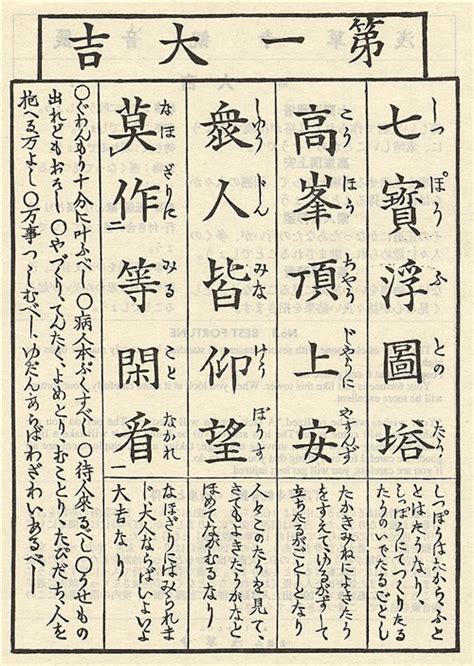 第一大吉
七寳浮圖塔
しつぽうふとのたう
高峯頂上安
かうほうちやうじやうにやすんず
衆人皆仰望
しゆうじんみなけうぼうす
莫作等閑看
なほざりにみることなかれ
とはたうなり、
しつぽうにてつくりたる
たうのいでたるごとし
たかきみねによきたう
をすえて、ゆるがず
立ちたるがごとしとなり
人々このたうを見て、
さてもよきたうかなと
ほめてながむるなり
なほざりにはみられま
じ大人ならばいよいよ
大吉なり
○ぐわんもう十分に叶ふべし○病人本ぶくすべし○待人来るべし○うせもの
出れどもおそし○やづくり、てんたく、よめとり、むことり、たびだち、人を
抱へる万よし○万事つゝしむべし、ゆだんあらばわざわいあるべし